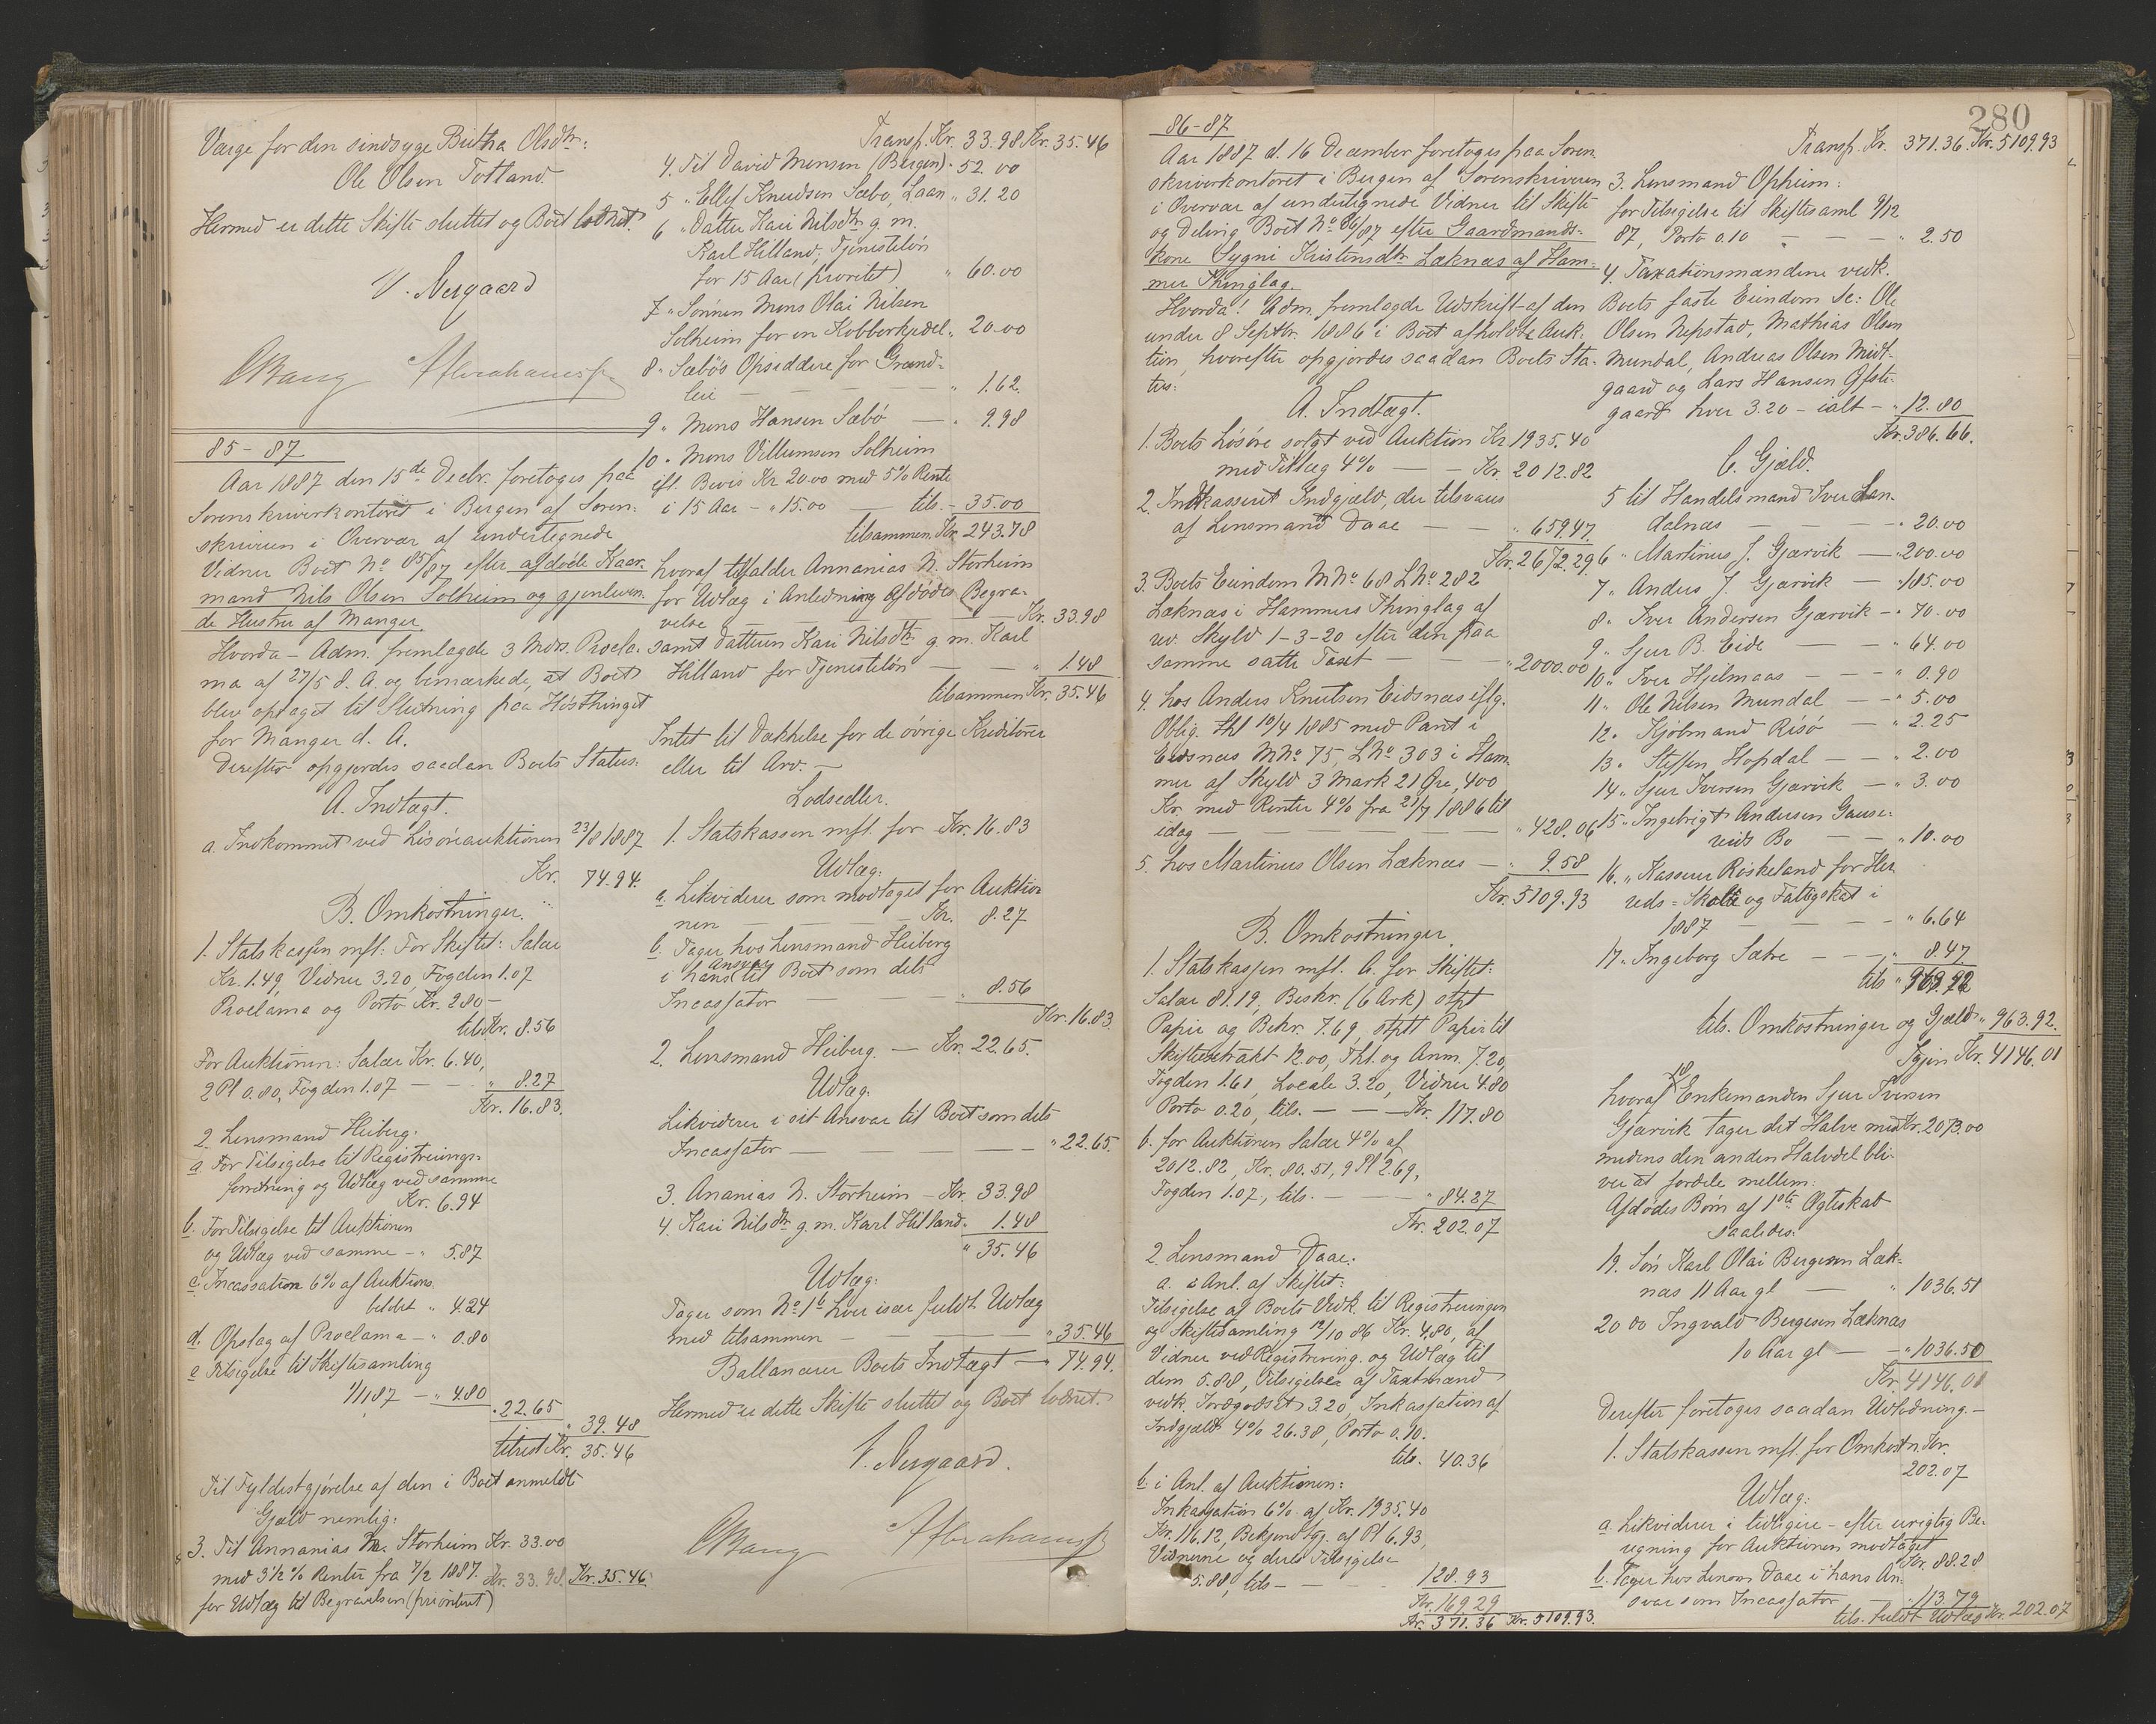 Værge for den sindsyge Britha Olsdtr:
Ole Olsen Totland.
Hermed er dette Skifte sluttet og Boet loddet.
V. Nergaard
CBang
85-87
Aar 1887 den 15de Decbr. foretoges paa
Sorenskriverkontoret i Bergen af Soren-
skriveren i Overvær af undertegnede
Vidner Boet No 85/87 efter afdøde Kaar-
mand Nils Olsen Solheim og gjenleven-
de Hustru af Manger
Hvorda - Adm. fremlagde 3 Mdrs. Procla-
ma af 27/5 d. A. og bemærkede, at Boet
blev optaget til Slutning paa Høstthinget
for Manger d. A.
Derefter opgjordes saadan Boets Status.
A. Indtægt.
a. Indkommet ved Løsøreauktionen 23/8 1887
Kr. 74.94.
B. Omkostninger.
1. Statskassen mfl: For Skiftet: Salær
Kr. 1.49, Vidner 3.20, Fogden 1.07
Proclama og Porto Kr. 2.80 -
tils. Kr. 8.56
For Auktionen: Salær Kr. 6.40,
2 Pl 0.80, Fogden 1.07 - - " 8.27
Kr. 16.83.
2. Lensmand Heiberg:
a. For Tilsigelse til Registrerings-
forretning og Udlæg ved samme
Kr. 6.94
b. For Tilsigelse til Auktionen
og Udlæg ved samme - " 5.87
c. Incassation 6% af Auktions-
beløbet " 4.24
d. Opslag af Proclama - " 0.80
e. Tilsigelse til Skiftesamling
1/11 87 - " 4.80
" 22.65
" 39.48
tilrest Kr. 35.46
Til Fyldestgjørelse af den i Boet anmeldte
Gjæld nemlig:
3. Til Annanias N. Storheim Kr. 33.00
med 3 1/2 % Renter fra 7/2 1887. Kr. 33.98. Kr. 35.46.
for Udlæg til Begravelsen (prioritet)
Transp. Kr. 33.98 Kr. 35.46
4. Til David Monsen (Bergen) " 52.00
5 " Ellef Knudsen Sæbø, Laan " 31.20
6 " Datter Kari Nilsdtr g. m.
Karl Hilland, Tjenesteløn
for 15 Aar (prioritet) " 60.00
7 " Sønnen Mons Olai Nilsen
Solheim for en Kobberkjedel " 20.00
8 " Sæbös Opsiddere for Grund-
leie - - - " 1.62.
9 " Mons Hansen Sæbö - " 9.98
10 " Mons Villumsen Solheim
ifl. Bevis Kr 20.00 med 5% Rente
i 15 Aar - " 15.00 - tils. - 35.00
tilsammen Kr. 243.78
hvoraf tilfalder Annanias N. Storheim
for Udlæg i Anledning Afdødes Begra-
velse - - Kr. 33.98
samt datteren Kari Nilsdtr g. m. Karl
Hilland for Tjenesteløn - - " 1.48
tilsammen Kr. 35.46
Intet til Dækkelse for de øvrige Kreditorer
eller til Arv. -
Lodsedler.
1. Statskassen mfl. for Kr. 16.83
Udlæg:
a. Likviderer som modtaget for Auktio-
nen - - Kr. 8.27
b. Tager hos Lensmand Heiberg
i hans Ansvar til Boet som dets
Incassator - " 8.56
Kr. 16.83
2. Lensmand Heiberg. - Kr. 22.65.
Udlæg:
Likviderer i sit Ansvar til Boet som dets
Incassator - - " 22.65.
3. Ananias N. Storheim - Kr. 33.98
4. Kari Nilsdtr g. m. Karl Hilland " 1.48
" 35.46
Udlæg:
Tager som No 1b hver især fuldt Udlæg
med tilsammen - - " 35.46
Ballancerer Boets Indtægt - " 74.94.
Hermed er dette Skifte sluttet og Boet loddet.
V. Nergaard.
CBang
280
86-87
Aar 1887 d. 16 December foretoges paa Soren-
skriverkontoret i Bergen af Sorenskriveren
i Overvær af undertegnede Vidner til Skifte
og Deling Boet No 86/87 efter Gaardmands-
kone Sygni Kristensdtr Læknæs af Ham-
mer Thinglag.
Hvorda! Adm. fremlagde Udskrift af den
under 8 Septbr. 1886 i Boet afholdte Auk-
tion, hvorefter opgjordes saadan Boets Sta-
tus:
A. Indtægt.
1. Boets Løsøre solgt ved Auktion Kr 1935.40
med Tillæg 4% - - Kr. 2012.82
2. Indkasseret Indgjæld, der tilsvares
af Lensmand Daae - - " 659.47.
Kr. 2672.29
3. Boets Eiendom MNo. 68 LNo. 282
Læknæs i Hammers Thinglag af
rev. Skyld 1-3-20 efter den paa
samme satte Taxt - - " 2000.00
4. hos Anders Knutsen Eidsnæs iflg.
Oblig. thl 10/4 1885 med Pant i
Eidsnæs MNo. 75, LNo. 303 i Ham-
mer af Skyld 3 Mark 21 Øre, 400
Kr. med Renter 4% fra 21/7 1886 til
idag - - " 428.06
5. hos Martinus Olsen Læknæs - " 9.58
Kr. 5109.93
B. Omkostninger
1. Statskassen mfl. a. for Skiftet:
Salær 81.19, Beskr. (6 Ark) stpt
Papir og Bekr. 7.69, stptt Papir til
Skifteextrakt 12.00, Thl. og Anm. 7.20,
Fogden 1.61, Locale 3.20, Vidner 4.80
Porto 0.20, tils. - - Kr. 117.80
b. for Auktionen Salær 4% af
2012.82, Kr. 80.51, 9 Pl 2.69,
Fogden 1.07, tils. - - " 84.27
Kr. 202.07
2. Lensmand Daae:
a. i Anl. af Skiftet:
Tilsigelse af Boets Vedk. til Registreringen
og Skiftesamling 12/10 86 Kr. 4.80, af
Vidner ved Registrering. og Udlæg til
dem 5.88, Tilsigelse af Taxtmænd
vedk. Jordgodset 3.20, Inkassation af
Indgjæld 4% 26.38, Porto 0.10.
tils. 40.36
b. i Anl. af Auktionen:
Inkassation 6% af Kr. 1935.40
Kr. 116.12, Bekjendtg. af Pl 6.93,
Vidnerne og deres Tilsigelse
5.88, tils - - 128.93
Kr. 169.29
Kr. 371.36 Kr. 5109.93.
Transp. Kr. 371.36. Kr. 5109.93
3. Lensmand Opheim:
for Tilsigelse til Skiftesaml 9/12
87, Porto 0.10 - - " 2.50
4. Taxationsmændene vedk.
Boets faste Eiendom Sc: Ole
Olsen Nepstad, Mathias Olsen
Mundal, Andreas Olsen Midt-
gaard og Lars Hansen Øfste-
gaard hver 3.20 - ialt - " 12.80
Kr. 386.66.
C. Gjæld.
5 til Handelsmand Iver
dalnæs - - " 20.00
6 " Martinus J. Gjærvik - " 200.00
7 " Anders J. Gjærvik - " 185.00
8 " Iver Andersen Gjærvik - " 70.00
9 " Sjur B. Eide - " 64.00
10 " Iver Hjelmaas - - " 0.90
11 " Ole Nilsen Mundal - " 5.00
12 " Kjøbmand Risö - " 2.25
13 " Steffen Hopdal - - " 2.00
14 " Sjur Iversen Gjærvik - " 3.00
15 " Ingebrigt Andersen
Bo - - " 10.00
16. " Kasserer Røskeland for Her-
reds-Skat og Fattigskat i
1887 - - " 6.64
17 " Ingeborg Sætre - - " 8.47
tils "
tils. Omkostninger og Gjæld " 963.92.
Igjen Kr. 4146.01
hvoraf 18 Enkemanden Sjur Iversen
Gjærvik tager det Halve med Kr. 2073.00
medens den anden Halvdel bli-
ver at fordele mellem:
Afdødes Børn af 1ste Ægteskab
saaledes:
19. Søn Karl Olai Bergesen Læk-
næs 11 Aar gl - " 1036.51
20 do Ingvald Bergesen Læknæs
10 Aar gl - " 1036.50
Kr. 4146.01
Derefter foretoges saadan Udlodning. -
1. Statskassen mfl. for Omkostn. Kr.
202.07
Udlæg:
a. Likviderer i tidligere - efter urigtig Be-
regning for Auktionen modtaget
Kr. 88.28
b. Tager hos Lensm. Daae i hans An-
svar som Incassator - 113.79
tils. fuldt Udlæg Kr. 202.07